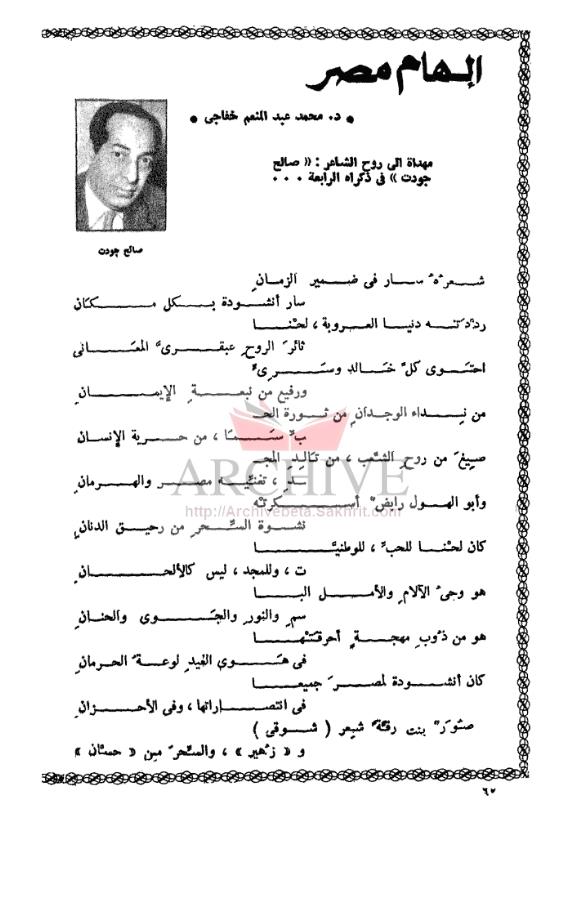 الهام مصر
• د. محمد عبد المنعم خفاجى •
مهداة الى روح الشاعر : « صالح
جودت » فى ذكراه الرابعة . . .
صالح جودت
شعرُهُ سار فى ضمير الزمانِ
سار أنشودة بكل مكان
ردّدته دنيا العروبة ، لحنا
ثائرَ الروحِ عبقرىَّ المعانى
احتوى كلَّ خالدٍ وسرىٍّ
ورفيع من نبعةِ الإيمانِ
من نداء الوجدانِ من ثورة الحـ
ـبِّ سنا ، من حرية الإنسان
صيغَ من روحِ الشعب ، من تالدِ المجـ
ـد ، تغنيه مصر والهرمان
وأبو الهول رابضٌ أسكرتْه
نشوة السحر من رحيق الدنان
كان لحنا للحبِّ ، للوطنيا
ت ، وللمجد ، ليس كالألحان
هو وحىُ الآلامِ والأمل البا
سم والنور والجوى والحنان
هو من ذوبِ مهجةٍ أحرقتْها
فى هوى الغيد لوعةُ الحرمان
كان أنشودة لمصرَ جميعا
فى انتصاراتها ، وفى الأحزانِ
صورٌ بنت رقة شعر ( شوقى )
و « زهير » ، والسحرَ من « حسان »
ARCHIVE
http://Archivebeta.Sakhrit.com
٦٧